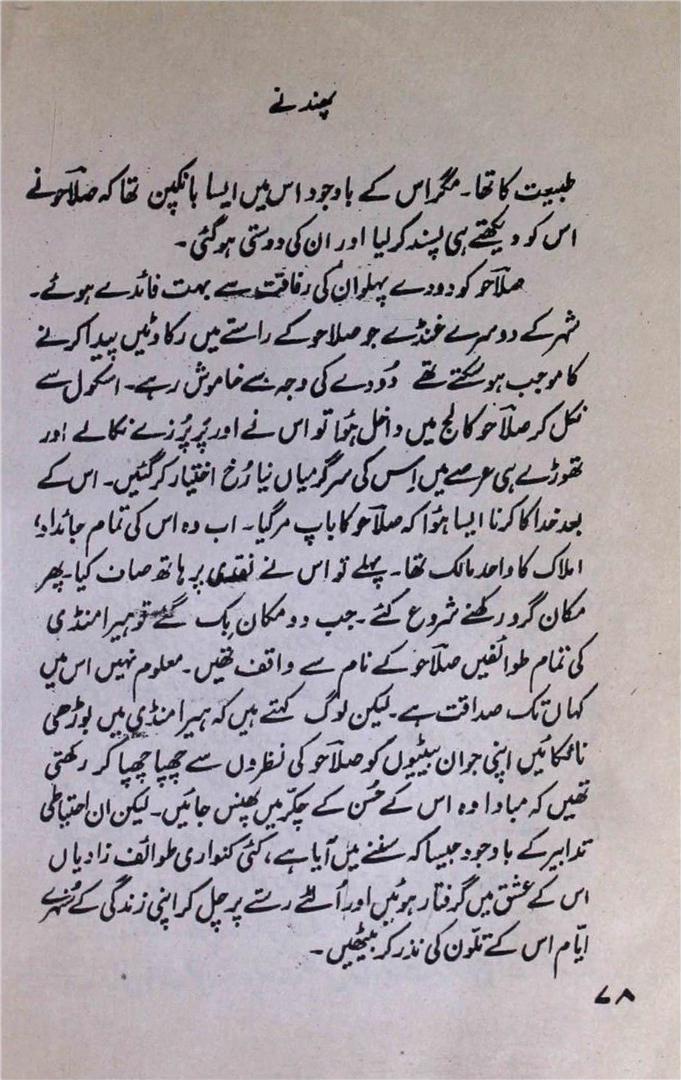 پھندنے
طبیعت کا تھا۔ مگر اس کے باوجود اس میں ایسا بانکپن تھا کہ صلاحو نے
اس کو دیکھتے ہی پسند کر لیا اور ان کی دوستی ہو گئی۔
صلاحو کو دودے پہلوان کی رفاقت سے بہت فائدے ہوئے۔
شہر کے دوسرے غنڈے جو صلاحو کے راستے میں رکاوٹیں پیدا کرنے
کا موجب ہو سکتے تھے دُودے کی وجہ سے خاموش رہے۔ اسکول سے
نکل کر صلاحو کالج میں داخل ہوُا تو اس نے اور پَر پُرزے نکالے اور
تھوڑے ہی عرصے میں اِس کی سرگرمیاں نیا رُخ اختیار کر گئیں۔ اس کے
بعد خدا کا کرنا ایسا ہوُا کہ صلاحو کا باپ مر گیا۔ اب وہ اس کی تمام جائداد،
املاک کا واحد مالک تھا۔ پہلے تو اس نے نقدی پر ہاتھ صاف کیا۔ پھر
مکان گرو رکھنے شروع کئے۔ جب دو مکان بِک گئے تو ہیرا منڈی
کی تمام طوائفیں صلاحو کے نام سے واقف تھیں۔ معلوم نہیں اس میں
کہاں تک صداقت ہے۔ لیکن لوگ کہتے ہیں کہ ہیرا منڈی میں بوڑھی
نائکائیں اپنی جوان بیٹیوں کو صلاحو کی نظروں سے چھپا چھپا کر رکھتی
تھیں کہ مبادا وہ اس کے حُسن کے چکّر میں پھنس جائیں۔ لیکن ان احتیاطی
تدابیر کے باوجود جیسا کہ سننے میں آیا ہے، کئی کنواری طوائف زادیاں
اس کے عشق میں گرفتار ہوئیں اور اُلٹے رستے پر چل کر اپنی زندگی کے سُنہرے
ایّام اس کے تلّون کی نذر کر بیٹھیں۔
۷۸